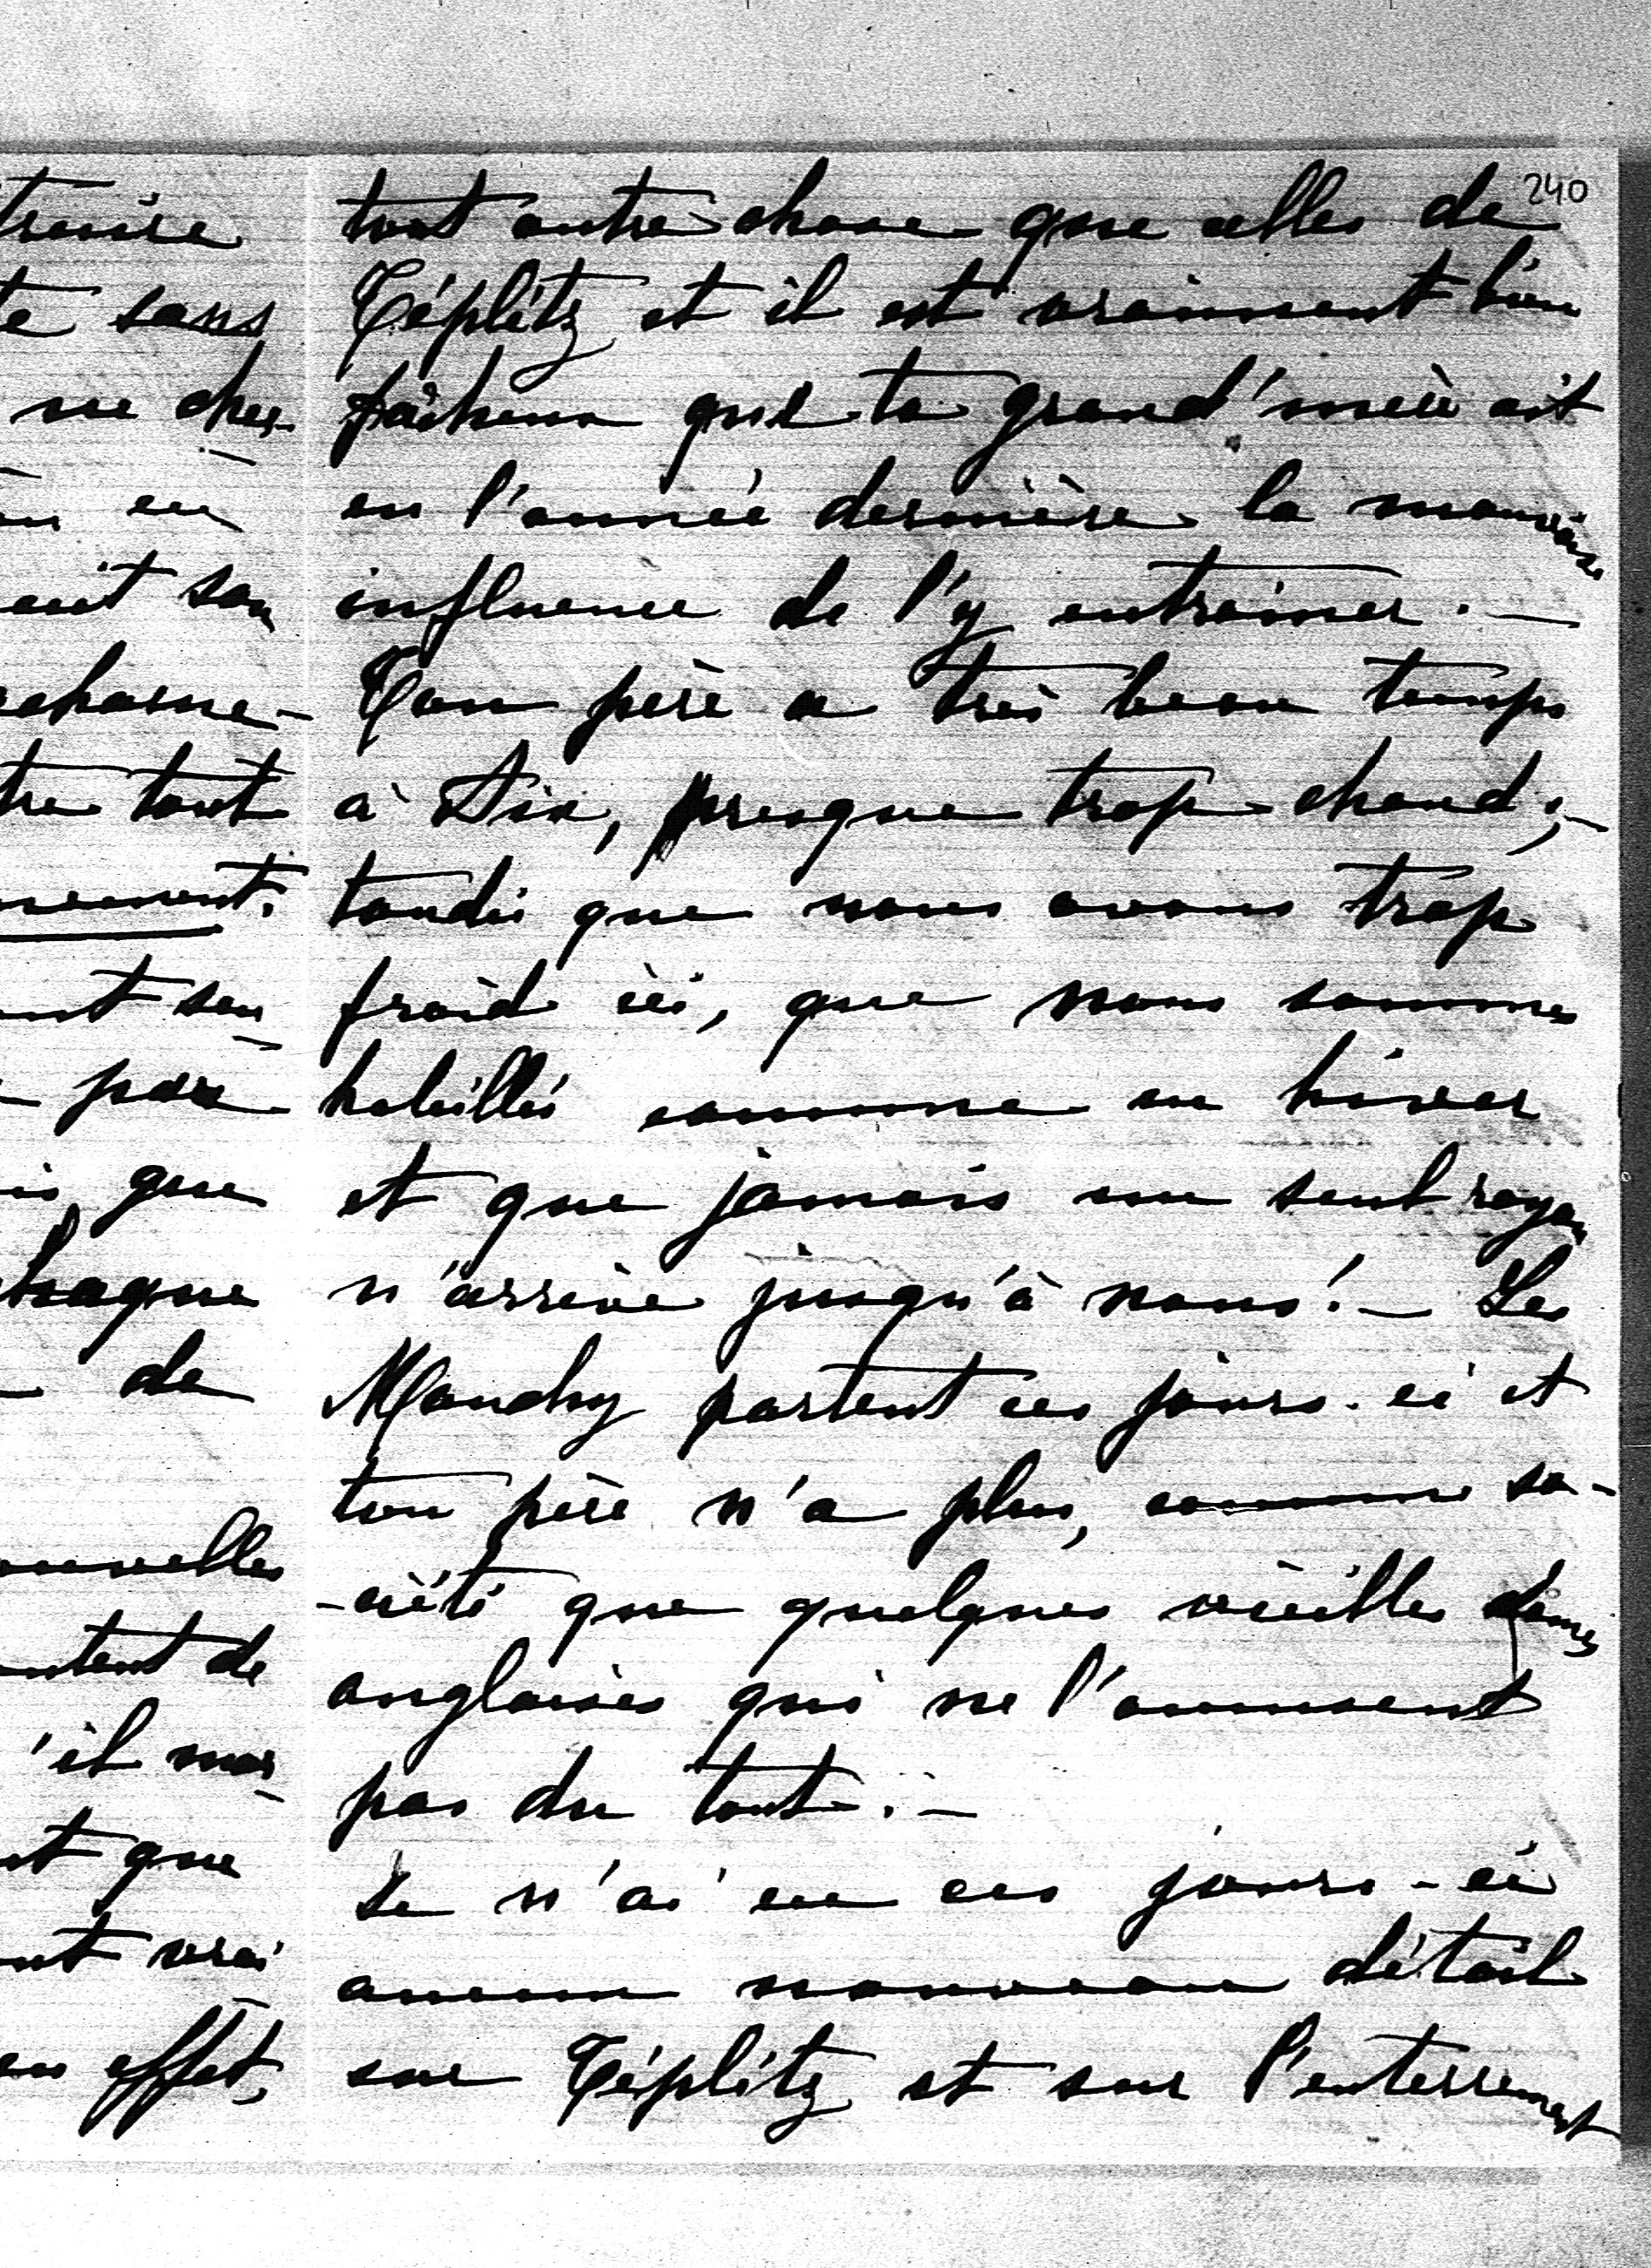 240
tout autre chose que celles de
Téplitz et il est vraiment bien
fâcheux que ta grand'mère ait
eu l'année dernière la mauvaise
influence de l'y entrainer. —
Ton père a très beau temps
à Aix, presque trop chaud; —
tandis que nous avons trop
froid ici, que nous sommes
habillés comme en hiver
et que jamais un seul rayon
n'arrive jusqu'à nous! — Les
partent ces jours-ci et
ton père n'a plus, comme so-
-ciété que quelques vieilles dames
anglaises qui ne l'amusent
pas du tout. —
Je n'ai eu ces jours-ci
aucun nouveau détail
sur Téplitz et sur l'enterrement
te sans
ne cher-
en
tre tout
que
de
ouvelles
'il
et que
vrai-
en effet,